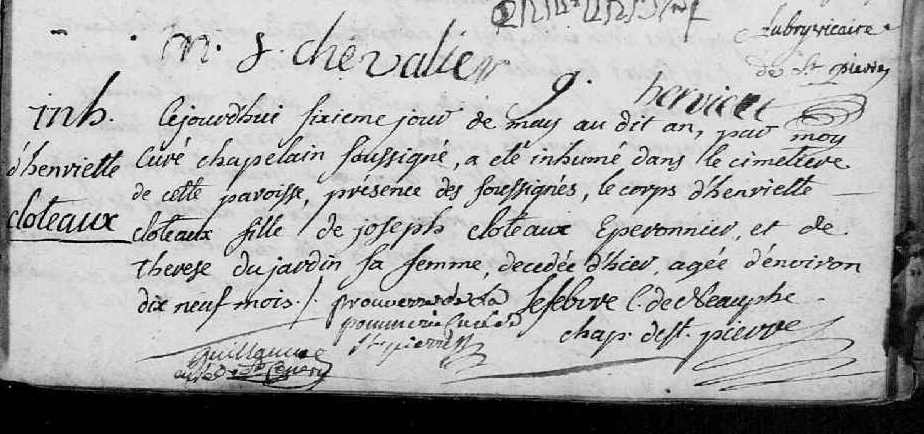 m. s. chevalier
g. hervieu
Aubry vicaire
de St pierre
inh.
d'henriette
cloteaux
Cejourd'hui sixieme jour de may au dit an, par moy
Curé chapelain soussigné, a eté inhumé dans le cimetiere
de cette paroisse, présence des soussignés, le corps d'henriette
cloteaux fille de joseph cloteaux Eperonnier, et de
therese dujardin sa femme, decedée d'hier, agée d'environ
dix neuf mois ./.
Lefebvre C. de Neauphe
chap. de st. pierre
de la
st pierre
guillaume